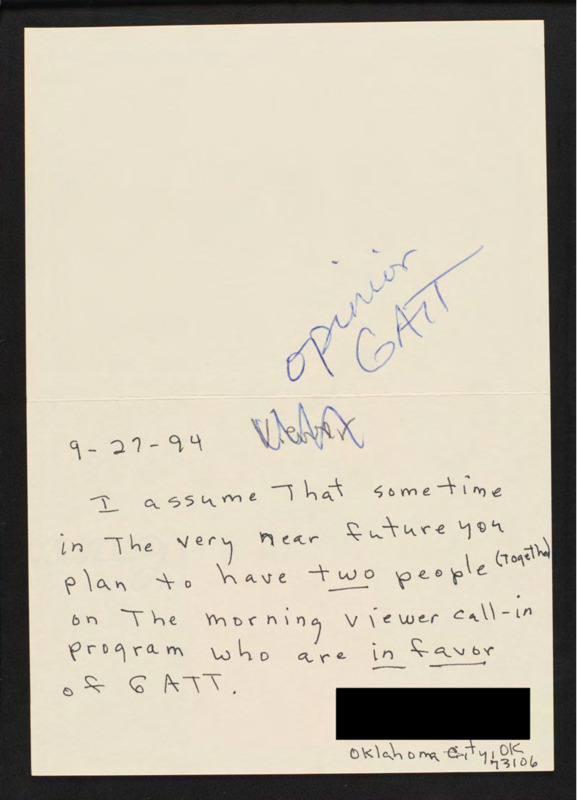 opinion
GATT
9-27-94
I assume That sometime
in The very near future you
plan to have two people (Together)
on The morning viewer call-in
program who are in favor
of GATT.
Oklahoma City, OK
73106